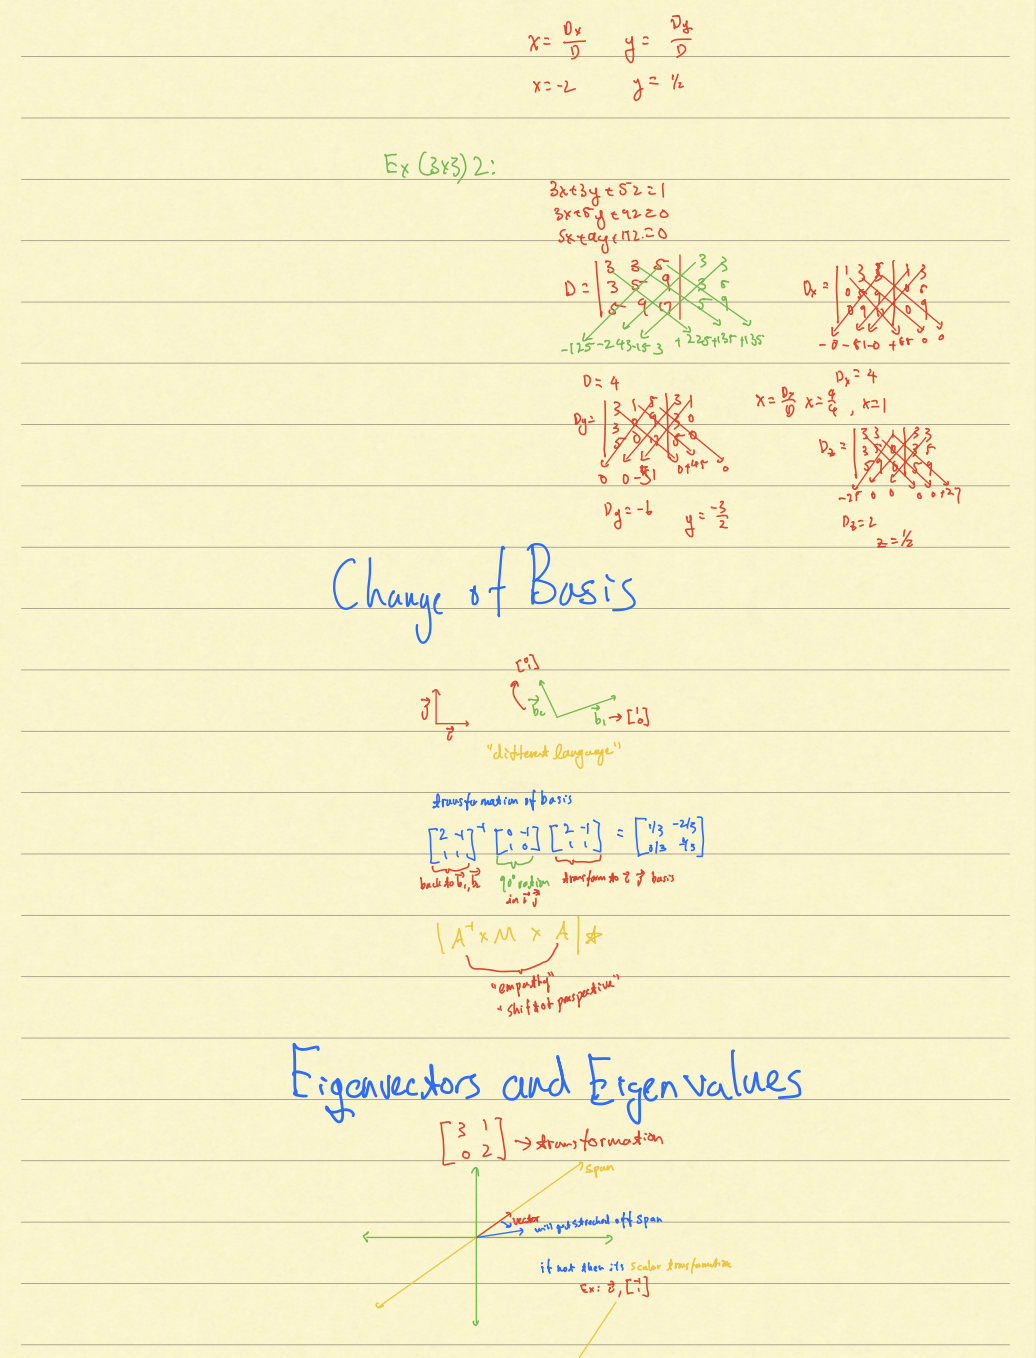 x = Dx/D   y = Dy/D
x = -2   y = 1/2
Ex (3x3) 2:
3x+3y+5z=1
3x+5y+9z=0
5x+9y+17z=0
D = | 3 3 5 | 3 3
3 5 9 | 3 5
5 9 17 | 5 9
-125 -243 -153 + 225+135+135
Dx = | 1 3 5 | 1 3
0 5 9 | 0 5
0 9 17 | 0 9
-0 -81 -0 +85 0 0
D = 4
Dx = 4
x = Dx/D x = 4/4, x=1
Dy = | 3 1 5 | 3 1
3 0 9 | 3 0
5 0 17 | 5 0
0 0 -51 0+45 0
Dy = -6   y = -3/2
Dz = | 3 3 1 | 3 3
3 5 0 | 3 5
5 9 0 | 5 9
-25 0 0 0 0+27
Dz = 2
z = 1/2
Change of Basis
[0 1]
j
i
b2
b1 → [1 0]
"different language"
transformation of basis
[2 -1; 1 1]⁻¹ [0 -1; 1 0] [2 -1; 1 1] = [1/3 -2/3; 5/3 -1/3]
back to b1, b2
90° rotation
in i j
transform to i j basis
| A⁻¹ x M x A | ☆
"empathy"
"shift of perspective"
Eigenvectors and Eigenvalues
[3 1; 0 2] → transformation
span
vector
will get streched off span
if not then its scalar transformation
Ex: i, [-1 1]